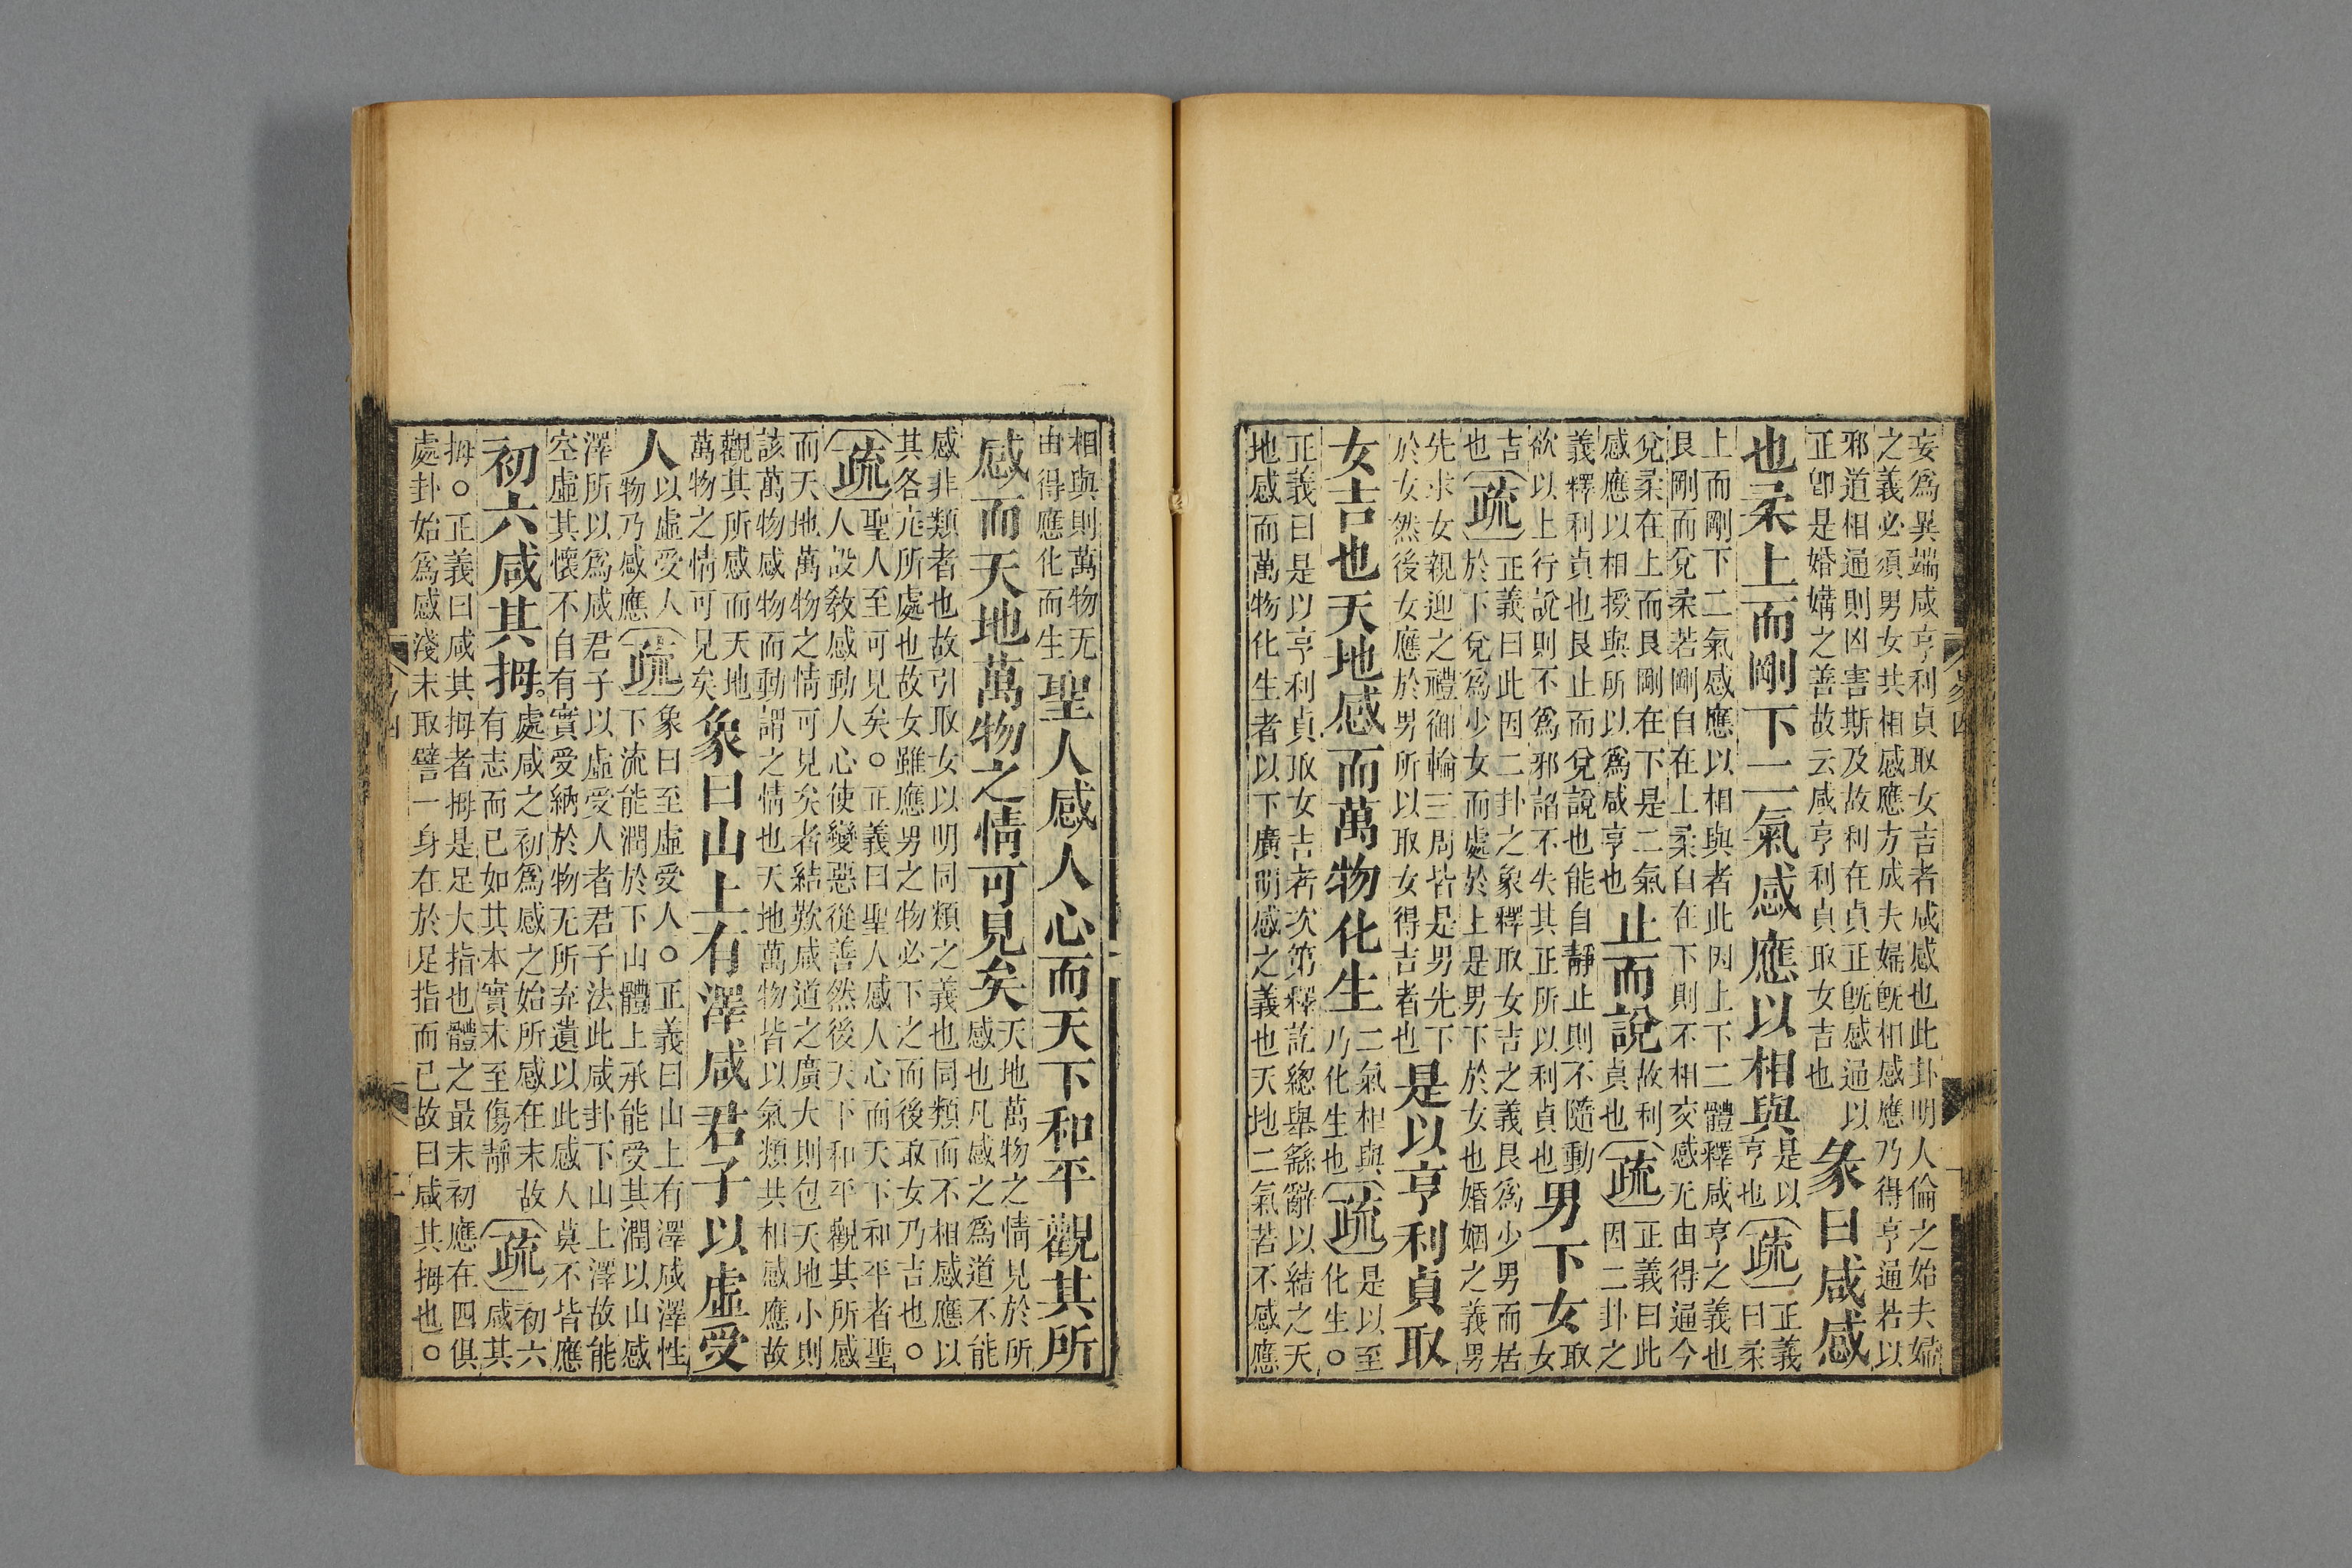 妄爲異端咸亨利貞取女吉者咸感也此卦明人倫之始夫婦
之義必須男女共相感應方成夫婦旣相感應乃得亨通若以
邪道相通則凶害斯及故利在貞正旣感通以
正卽是婚媾之善故云咸亨利貞取女吉也
彖曰咸感
也柔上而剛下二氣感應以相與
是以
亨也
疏
正義
曰柔
上而剛下二氣感應以相與者此因上下二體釋咸亨之義也
艮剛而兌柔若剛自在上柔自在下則不相交感无由得通今
兌柔在上而艮剛在下是二氣
感應以相授與所以爲咸亨也
止而說
故利
貞也
疏
正義曰此
因二卦之
義釋利貞也艮止而兌說也能自靜止則不隨動
欲以上行說則不爲邪諂不失其正所以利貞也
男下女
取
女
吉
也
疏
正義曰此因二卦之象釋取女吉之義艮爲少男而居
於下兌爲少女而處於上是男下於女也婚姻之義男
先求女親迎之禮御輪三周皆是男先下
於女然後女應於男所以取女得吉者也
是以亨利貞取
女吉也天地感而萬物化生
二氣相與
乃化生也
疏
是以至
化生○
正義曰是以亨利貞取女吉者次第釋訖總舉繇辭以結之天
地感而萬物化生者以下廣明感之義也天地二氣若不感應
相與則萬物无
由得應化而生
聖人感人心而天下和平觀其所
感而天地萬物之情可見矣
天地萬物之情見於所
感也凡感之爲道不能
感非類者也故引取女以明同類之義也同類而不相感應以
其各亢所處也故女雖應男之物必下之而後取女乃吉也○
疏
聖人至可見矣○正義曰聖人感人心而天下和平者聖
人設教感動人心使變惡從善然後天下和平觀其所感
而天地萬物之情可見矣者結歎咸道之廣大則包天地小則
該萬物感物而動謂之情也天地萬物皆以氣類共相感應故
觀其所感而天地
萬物之情可見矣
象曰山上有澤咸君子以虛受
人
以虛受人
物乃感應
疏
象曰至虛受人○正義曰山上有澤咸澤性
下流能潤於下山體上承能受其潤以山感
澤所以爲咸君子以虛受人者君子法此咸卦下山上澤故能
空虛其懷不自有實受納於物无所弃遺以此感人莫不皆應
初六咸其拇
處咸之初爲感之始所感在末故
有志而已如其本實末至傷靜
疏
初六
咸其
拇○正義曰咸其拇者拇是足大指也體之最末初應在四俱
處卦始爲感淺末取譬一身在於足指而已故曰咸其拇也○